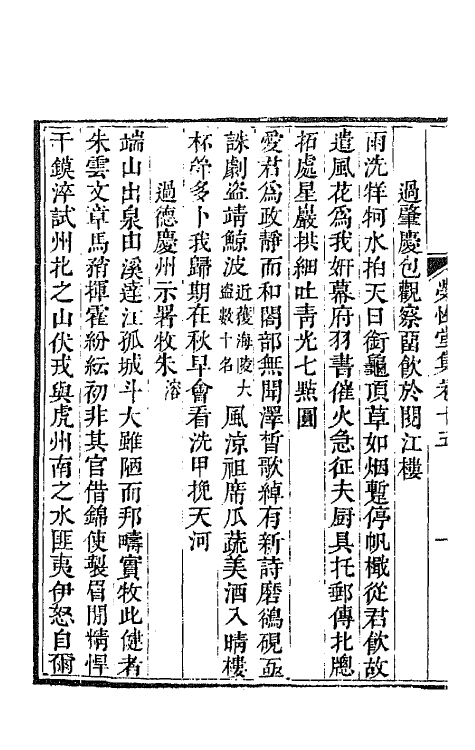 樂性堂集卷十五　一
過肇慶包觀察畱飲於閱江樓
雨洗牂牁水拍天日銜龜頂草如烟蹔停帆檝從君飲故
遣風花爲我姸幕府羽書催火急征夫厨具托郵傳北牕
拓處星巖拱細吐靑光七㸃圓
愛君爲政靜而和閤部無聞澤晳歌綽有新詩磨鸜硯亟
誅劇盗靖鯨波近獲海陵大盗數十名風涼祖席瓜蔬美酒入晴樓
杯斝多卜我歸期在秋早會看洗甲挽天河
過德慶州示署牧朱溶
端山出泉由溪達江孤城斗大雖陋而邦疇實牧此健者
朱雲文章馬矟揮霍紛紜初非其官借錦使製眉閒精悍
干鏌淬試州北之山伏戎與虎州南之水匪夷伊怒自爾